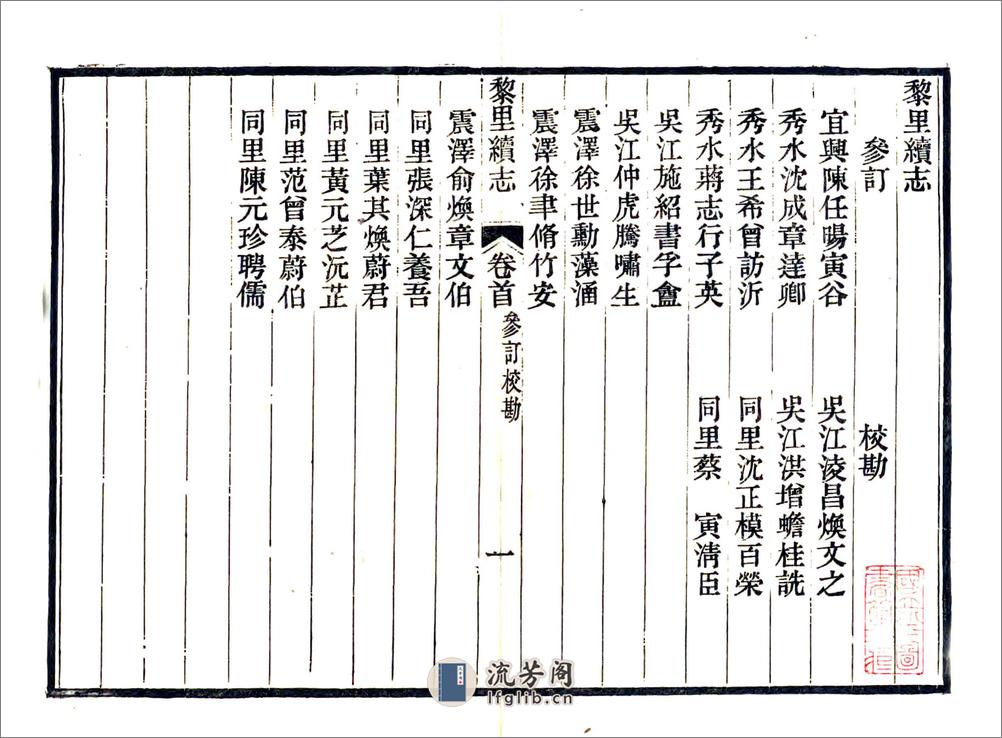 黎里續志
參訂
校勘
宜興陳任暘寅谷
吳江淩昌煥文之
秀水沈成章達卿
吳江洪增蟾桂詵
秀水王希曾訪沂
同里沈正模百榮
秀水蔣志行子英
同里蔡　寅清臣
吳江施紹書孚盦
吳江仲虎騰嘯生
震澤徐世勳藻涵
震澤徐聿脩竹安
黎里續志
卷首
參訂校勘
一
震澤俞煥章文伯
同里張深仁養吾
同里葉其煥蔚君
同里黃元芝沅芷
同里范曾泰蔚伯
同里陳元珍聘儒
流芳阁
lfglib.cn